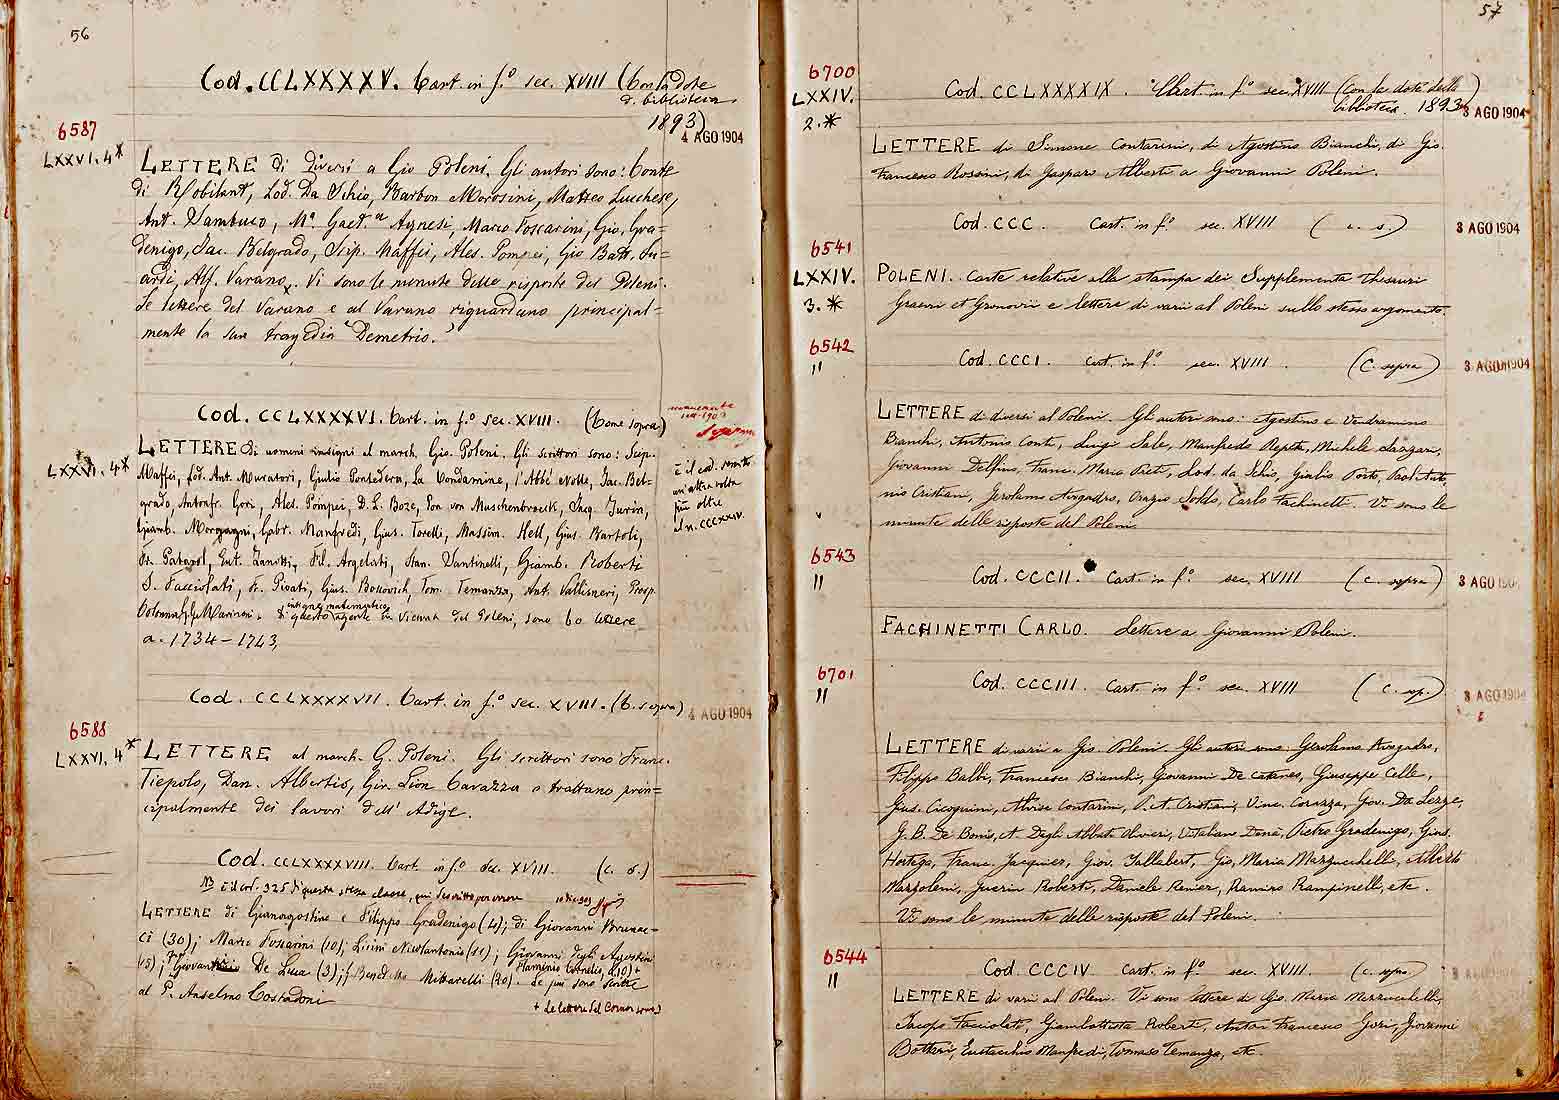 56
Cod. CCLXXXXV. Cart. in f.º sec. XVIII (Con la dote
d. biblioteca
1893)
4 AGO 1904
6587
LXXVI, 4*
LETTERE di Diversi a Gio Poleni. Gli autori sono: Conte
di Robilant, Lod. Da Schio, Barbon Morosini, Matteo Lucchese,
Ant. Sambuco, Mª Gaet.ª Agnesi, Marco Foscarini, Gio. Gra=
denigo, Jac. Belgrado, Scip. Maffei, Ales. Pompei, Gio Batt. Su=
ardi, Alf. Varano. Vi sono le minute delle risposte del Poleni.
Le lettere del Varano e al Varano riguardano principal=
mente la sua tragedia "Demetrio."
Cod. CCLXXXXVI. Cart. in f.º sec. XVIII. (Come sopra)
mancante
LXXVI. 4*
LETTERE di uomini insigni al march. Gio. Poleni. Gli scrittori sono: Scip.
Maffei, Lod. Ant. Muratori, Giulio Pontedera, La Condamine, l'Abbé Nollet, Jac. Bel-
grado, Antonfr. Gori, Ales. Pompei, D. L. Boze, Pon. von Muschenbroeck, Jacq. Jurin,
Giamb. Morgagni, Gabr. Manfredi, Gius. Torelli, Massim. Hell, Gius. Bartoli,
Pr. Patarol, Eut. Zanotti, Fil. Argelati, Stan. Santinelli, Giamb. Roberti
J. Facciolati, Fr. Pivati, Gius. Boscovich, Tom. Temanza, Ant. Vallisneri, Prosp.
insigne matematico
Marinoni. Di questo agente in Vienna del Poleni, sono 60 lettere
a. 1734-1743,
è il cod. descritto
un'altra volta
più oltre
al n. CCCXXIV.
Cod. CCLXXXXVII. Cart. in f.º sec. XVIII. (C. sopra)
4 AGO 1904
6588
LXXVI, 4*
LETTERE al march. G. Poleni. Gli scrittori sono Franc.
Tiepolo, Dan. Albertis, Gir. Lion Cavazza e trattano prin=
cipalmente dei lavori dell' Adige.
Cod. CCLXXXXVIII. Cart. in f.º sec. XVIII. (c. s.)
NB è il cod. 325 di questa stessa classe, qui descritto per errore
LETTERE di Gianagostino e Filippo Gradenigo (4); di Giovanni Brunac-
ci (30); Marco Foscarini (10); Lisini Nicolantonio (11); Giovanni degli Agostini
Flaminio Cornelio, (210)+
(15); De Luca (3); Benedetto Mittarelli (20). Le più sono dirette
al P. Anselmo Costadoni
+ Le lettere del Corner sono
57
6700
LXXIV.
2.*
Cod. CCLXXXXIX. Cart. in f.º sec. XVIII (con la dote della
biblioteca. 1893)
3 AGO 1904
LETTERE di Simone Contarini, di Agostino Bianchi, di Gio.
Francesco Rossini, di Gaspare Alberti a Giovanni Poleni.
Cod. CCC. Cart. in f.º sec. XVIII (c. s.)
3 AGO 1904
6541
LXXIV.
3.*
POLENI. Carte relative alla stampa dei Supplementa thesauri
Graevii et Gronovii e lettere di varii al Poleni sullo stesso argomento.
6542
"
Cod. CCCI. Cart. in f.º sec. XVIII. (C. sopra)
3 AGO 1904
LETTERE di diversi al Poleni. Gli autori sono: Agostino e Vendramino
Bianchi, Antonio Conti, Luigi Sale, Manfredo Repeta, Michele Lazzari,
Giovanni Delfino, Franc. Maria Preti, Lod. da Schio, Giulio Porto, Paol'Anto-
nio Cristiani, Gerolamo Avogadro, Orazio Soldo, Carlo Fachinetti. Vi sono le
minute delle risposte del Poleni
6543
"
Cod. CCCII. Cart. in f.º sec. XVIII (c. sopra)
3 AGO 1904
FACHINETTI CARLO. Lettere a Giovanni Poleni.
6701
"
Cod. CCCIII. Cart. in f.º sec. XVIII (c. sop.)
3 AGO 1904
LETTERE di varii a Gio. Poleni. Gli autori sono Gerolamo Avogadro,
Filippo Balbi, Francesco Bianchi, Giovanni De Cataneo, Giuseppe Celle,
Gius. Cicognini, Alvise Contarini, P. A. Cristiani, Vinc. Corazza, Giov. Da Lezze,
G. B. De Bonis, A. Degli Abbati Olivieri, Vitaliano Donà, Pietro Gradenigo, Gius.
Hortega, Franc. Jacquier, Giov. Jallabert, Gio. Maria Mazzucchelli, Alberto
Mazzoleni, Guerin Roberti, Daniele Renier, Ramiro Rampinelli, etc.
Vi sono le minute delle risposte del Poleni.
6544
"
Cod. CCCIV. Cart. in f.º sec. XVIII. (c. sopra)
3 AGO 1904
LETTERE di varii al Poleni. Vi sono lettere di Gio. Maria Mazzucchelli,
Jacopo Facciolati, Giambattista Roberti, Anton Francesco Gori, Giovanni
Bottari, Eustacchio Manfredi, Tomaso Temanza, etc.